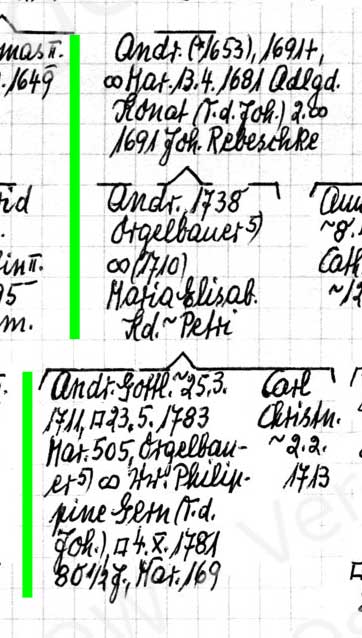 mas II.
.1649
Andr. (*1653), 1691†,
∞ Mar. 13.4.1681 Adlgd.
Konat (T.d. Joh.) 2.∞
1691 Joh. Rebeschke
rid
in II.
95
m.
Andr., 1738
Orgelbauer 5)
∞ (1710)
Maria Elisab.
Kd. ~ Petri
~8.
Cath
~12
Andr. Gottl. ~25.3.
1711, □23.5.1783
Mar. 505, Orgelbau-
er 5) ∞ Philip-
pine Gern (T.d.
Joh.), □4.X.1781
80½ J., Mar. 169
Carl
Christn.
~2.2.
1713